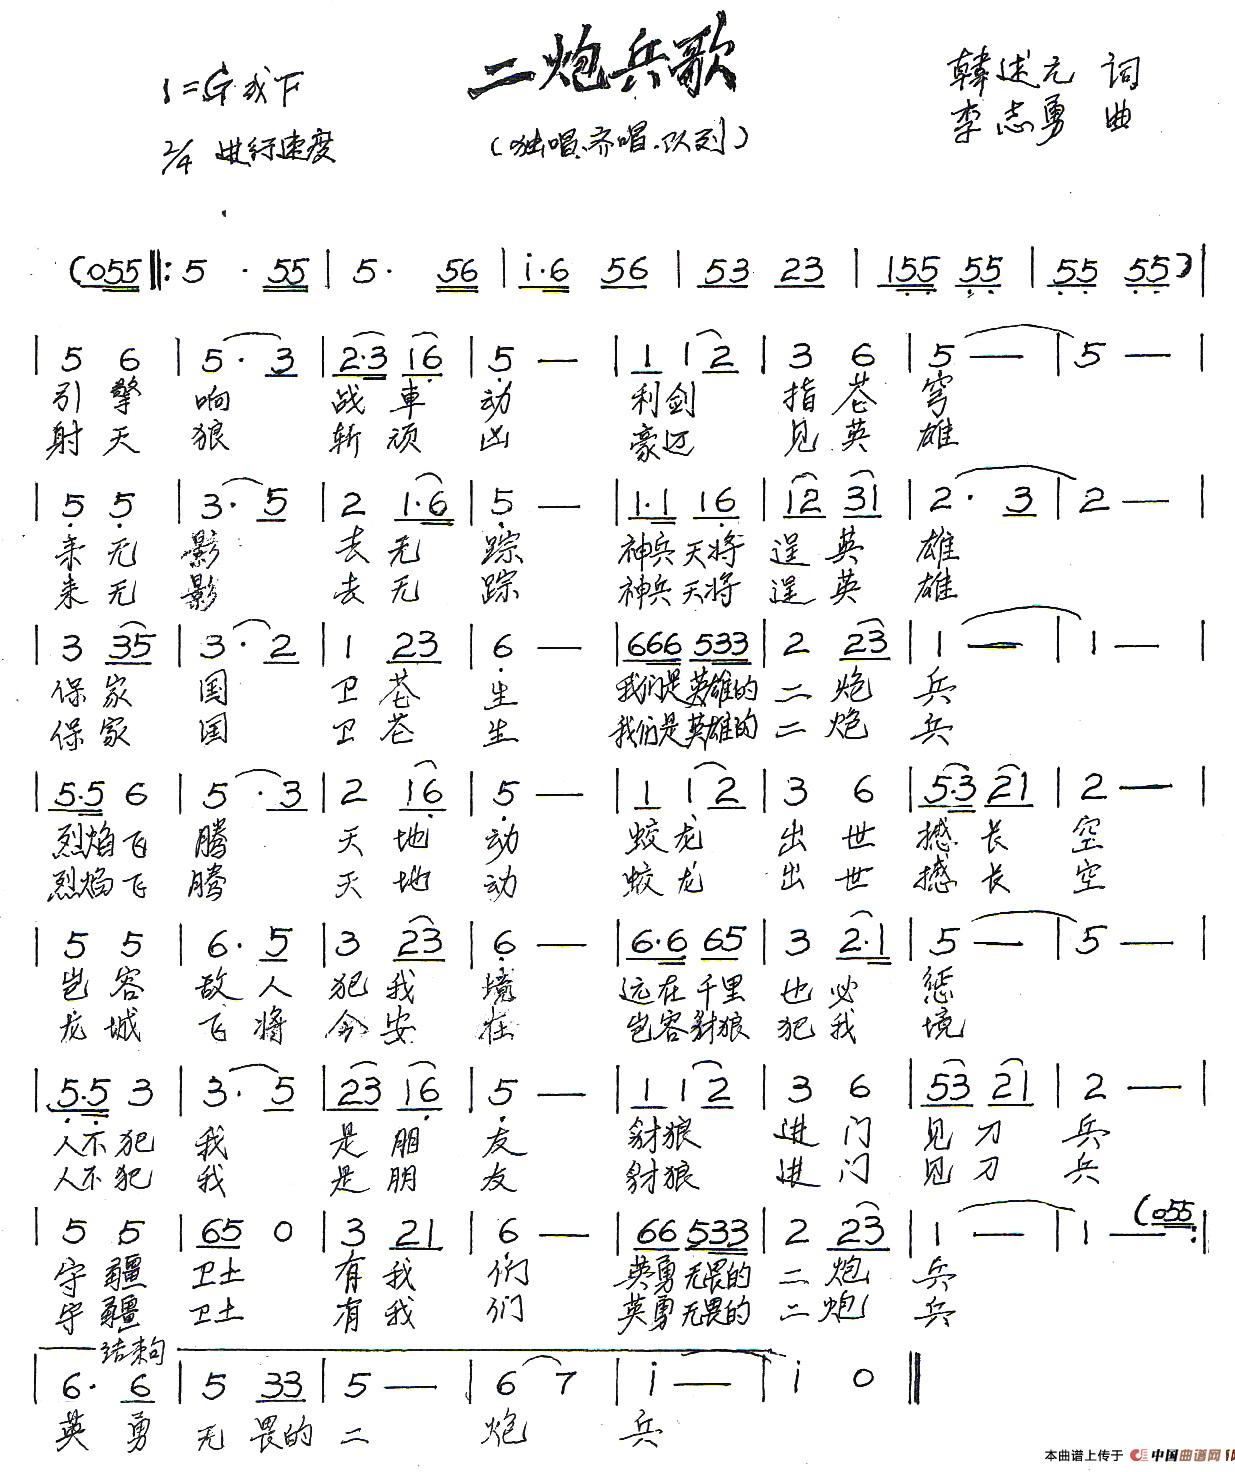 二炮兵歌
1=G或F
韩述元 词
2/4 进行速度
(独唱、齐唱、队列)
李志勇 曲
(055‖: 5 · 55 | 5· 56 | i·6 56 | 53 23 | 155 55 | 55 55) |
| 5 6 | 5· 3 | 2·3 16 | 5 — | 1 1 2 | 3 6 | 5 — | 5 — |
引擎 响 战車 动 利剑 指苍 穹
射天 狼 斩顽 凶 豪迈 见英 雄
| 5 5 | 3· 5 | 2 1·6 | 5 — | 1·1 16 | 12 31 | 2· 3 | 2 — |
来无 影 去无 踪 神兵天将 逞英 雄
来无 影 去无 踪 神兵天将 逞英 雄
| 3 35 | 3· 2 | 1 23 | 6 — | 666 533 | 2 23 | 1 — | 1 — |
保家 国 卫苍 生 我们是英雄的 二炮 兵
保家 国 卫苍 生 我们是英雄的 二炮 兵
| 5·5 6 | 5 · 3 | 2 16 | 5 — | 1 1 2 | 3 6 | 5·3 21 | 2 — |
烈焰飞 腾 天地 动 蛟龙 出世 撼长 空
烈焰飞 腾 天地 动 蛟龙 出世 撼长 空
| 5 5 | 6· 5 | 3 23 | 6 — | 6·6 65 | 3 2·1 | 5 — | 5 — |
岂容 敌人 犯我 境 远在千里 也必 惩
龙城 飞将 今安 在 岂容豺狼 犯我 境
| 5·5 3 | 3· 5 | 23 16 | 5 — | 1 1 2 | 3 6 | 53 21 | 2 — |
人不犯 我 是朋 友 豺狼 进门 见刀 兵
人不犯 我 是朋 友 豺狼 进门 见刀 兵
| 5 5 | 65 0 | 3 21 | 6 — | 66 533 | 2 23 | 1 — | 1 — (055 :|
守疆 卫土 有我 们 英勇无畏的 二炮 兵
守疆 卫土 有我 们 英勇无畏的 二炮 兵
结束句
| 6· 6 | 5 33 | 5 — | 6 7 | i — | i 0 ‖
英勇 无畏的 二 炮 兵
本曲谱上传于 中国曲谱网